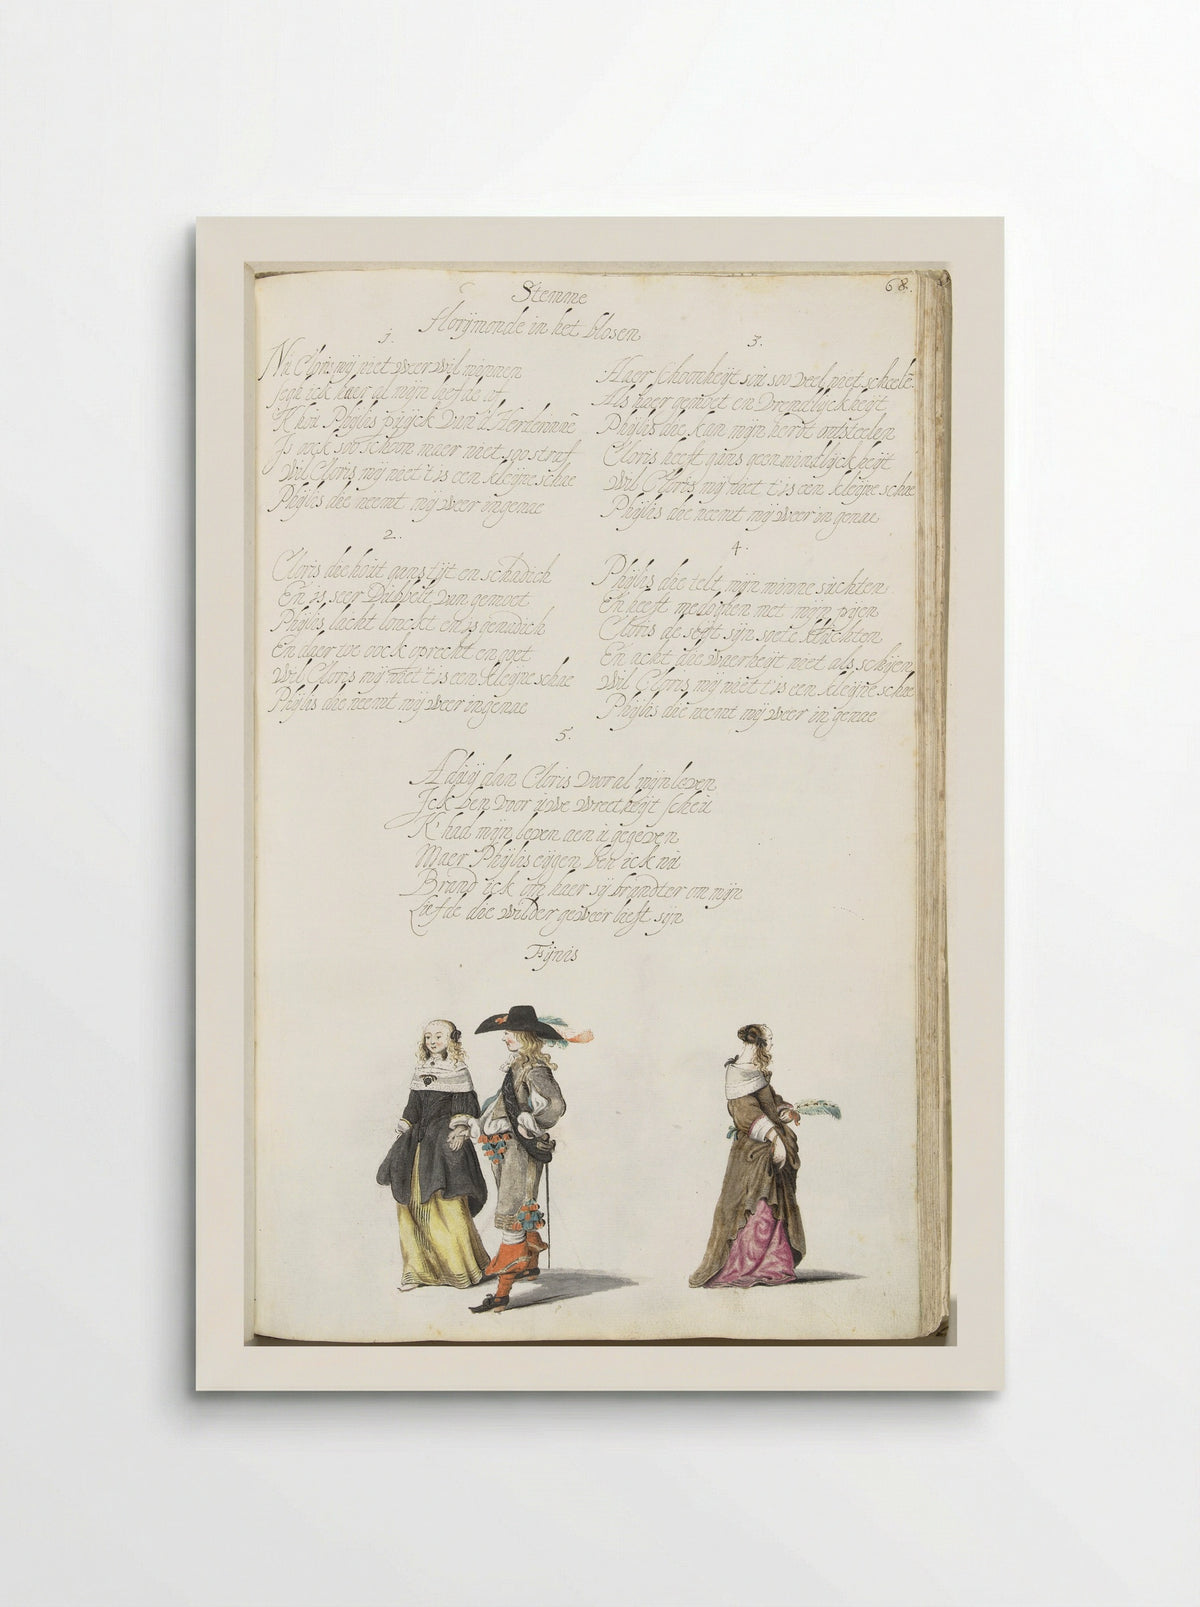 68.
Stemme
Florijmonde in het blosen
1.
Nu Cloris mij niet weer wil minnen
segh ick haer al mijn liefde of
K hin Phijlis pryck van d' Herderinnē
Is oock soo schoon maer niet soo straf
Wil Cloris mij niet t is een kleijne schae
Phijlis die neemt mij weer in genae
2.
Cloris die hout gans tijt en schadich
En is seer dubbelt van gemoet
Phijlis lacht lonckt en is genadich
En daer toe oock oprecht en goet
Wil Cloris mij niet t is een kleijne schae
Phijlis die neemt mij weer in genae
3.
Haer schoonheijt sou soo veel niet scheelē
Als haer gemoet en vrendlijckheijt
Phijlis die kan mijn herdt ontsteelen
Cloris heeft gans geen mindlijckheijt
Wil Cloris mij niet t is een kleijne schae
Phijlis die neemt mij weer in genae
4.
Phijlis die telt mijn minne suchten
En heeft medoghen met mijn pijen
Cloris de seijt sijn soete kluchten
En acht die waerheijt niet als schijen
Wil Cloris mij niet t is een kleijne schae
Phijlis die neemt mij weer in genae
5.
Adijij dan Cloris voor al mijn leven
Ick ben voor uwe wreetheijt scheu
K' had mijn leven aen u gegeven
Maer Phijlis eijgen ben ick nu
Brand ick om haer sij brandter om mijn
Liefde die wilder geweer lieft sijn
Fijnis